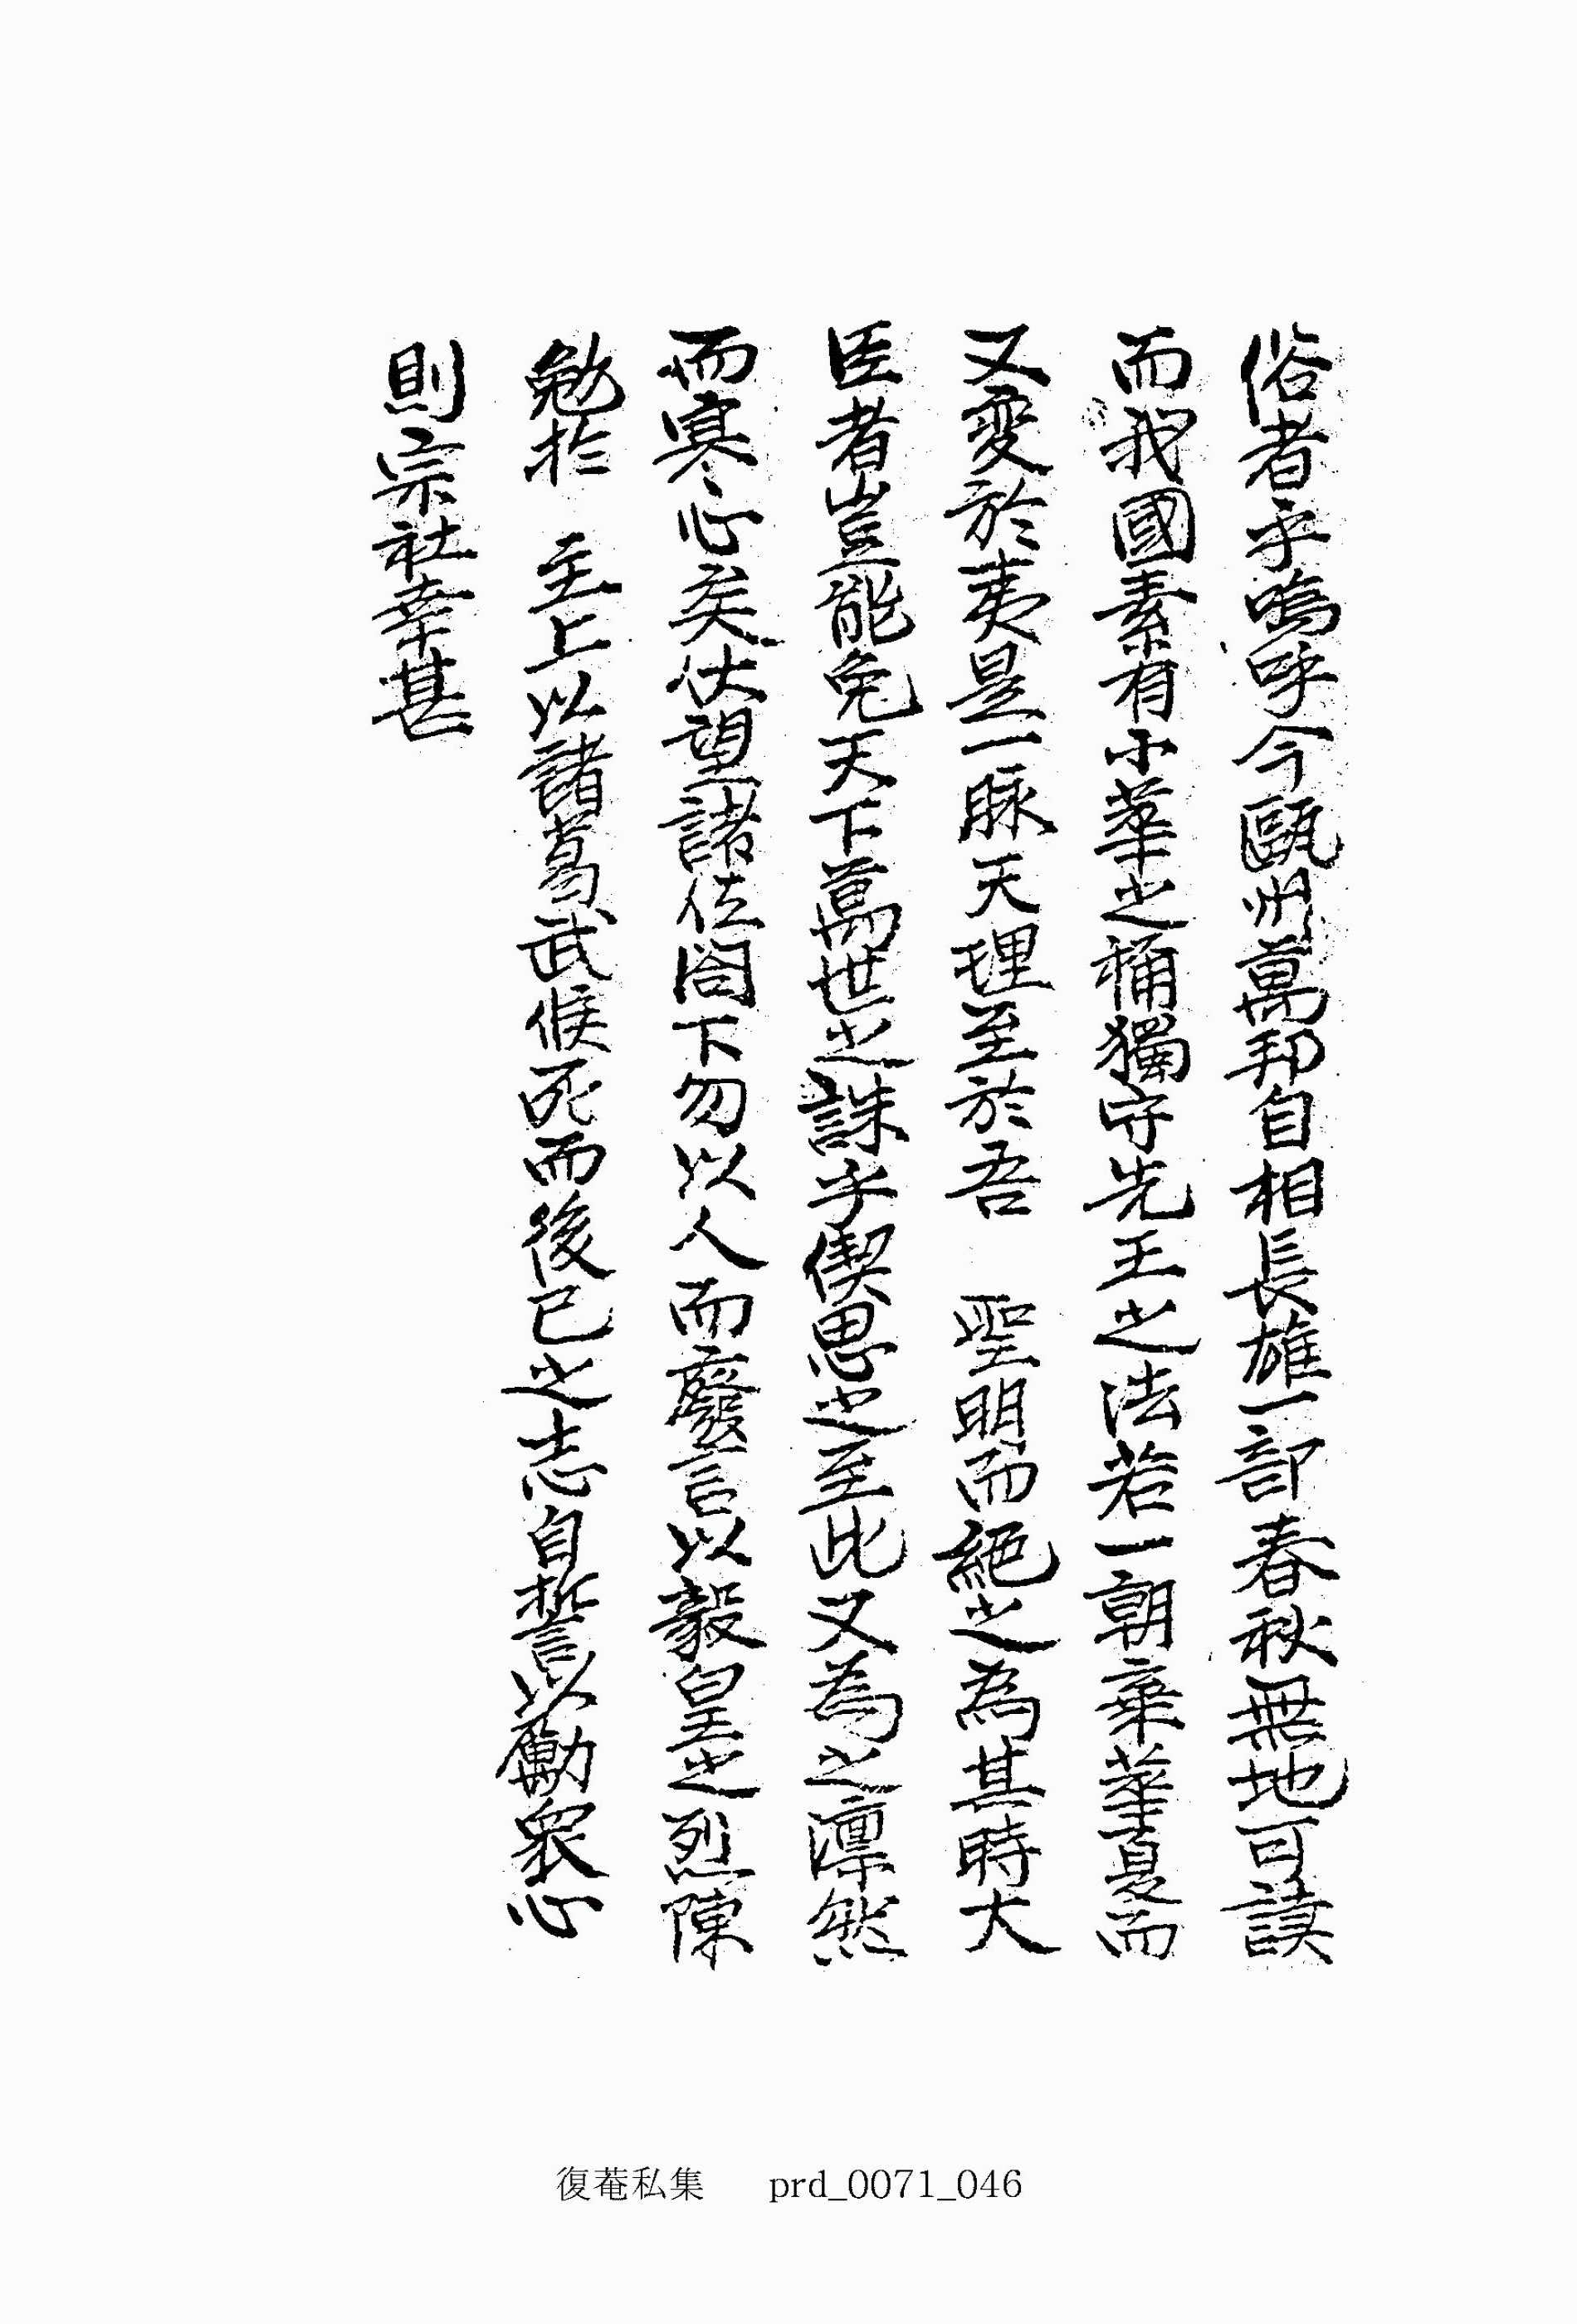 俗者乎嗚呼今甌州萬邦自相長雄一部春秋無地可讀
而我國素有小華之稱獨守先王之法若一朝棄華夏而
又變於夷是一脉天理至於吾 聖明而絕之為其時大
臣者豈能免天下萬世之誅乎偰思之至此又為之凛然
而寒心矣伏望諸位閤下勿以人而廢言以毅皇之烈陳
勉於 主上以諸葛武候死而後已之志自誓以勵衆心
則宗社幸甚
復菴私集 prd_0071_046